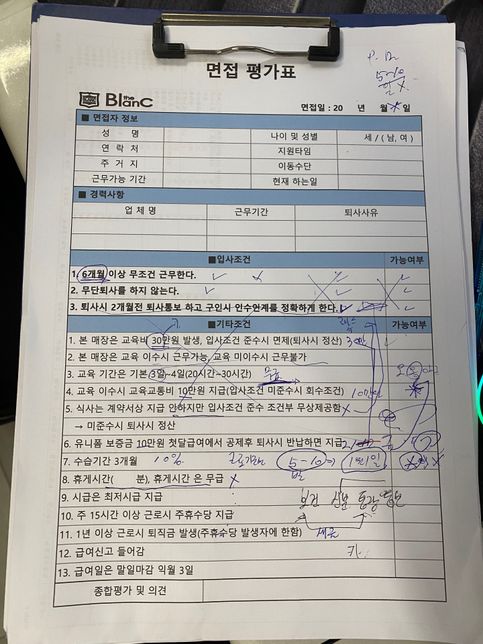 면접 평가표
5~10
the BlanC
면접일 : 20 년 월 일
■ 면접자 정보
성 명 나이 및 성별 세 / ( 남, 여 )
연 락 처 지원타임
주 거 지 이동수단
근무가능 기간 현재 하는일
■ 경력사항
업 체 명 근무기간 퇴사사유
■입사조건 가능여부
1. 6개월 이상 무조건 근무한다.
2. 무단퇴사를 하지 않는다.
3. 퇴사시 2개월전 퇴사통보 하고 구인시 인수인계를 정확하게 한다.
■기타조건 가능여부
1. 본 매장은 교육비 30만원 발생, 입사조건 준수시 면제(퇴사시 정산)
2. 본 매장은 교육 이수시 근무가능, 교육 미이수시 근무불가
3. 교육 기간은 기본 3일~4일(20시간~30시간) 무급
4. 교육 이수시 교육교통비 10만원 지급(입사조건 미준수시 회수조건) 10만
5. 식사는 계약서상 지급 안하지만 입사조건 준수 조건부 무상제공함
→ 미준수시 퇴사시 정산
6. 유니폼 보증금 10만원 첫달급여에서 공제후 퇴사시 반납하면 지급 2
7. 수습기간 3개월 10% 5~10
8. 휴게시간( 분), 휴게시간 은 무급
9. 시급은 최저시급 지급 보건
10. 주 15시간 이상 근로시 주휴수당 지급
11. 1년 이상 근로시 퇴직금 발생(주휴수당 발생자에 한함)
12. 급여신고 들어감
13. 급여일은 말일마감 익월 3일
종합평가 및 의견